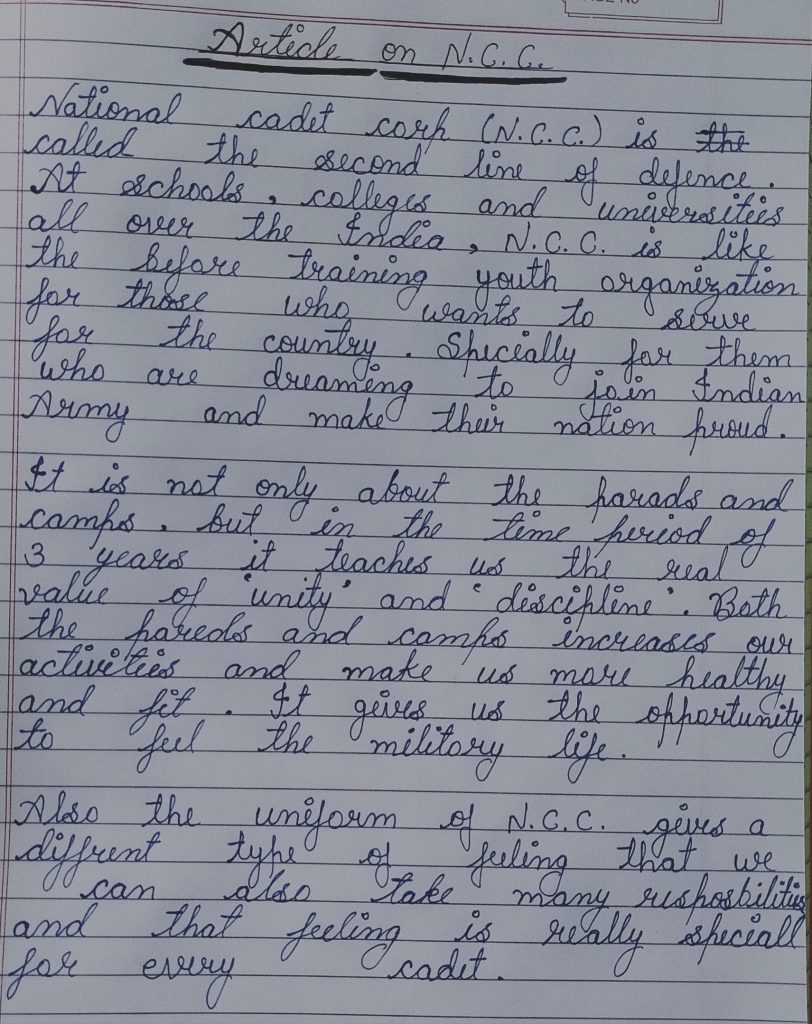 Article on N.C.C.
National cadet corp (N.C.C.) is the
called the second line of defence.
At schools, colleges and universities
all over the India, N.C.C. is like
the before training youth organization
for those who wants to serve
for the country. Specially for them
who are dreaming to join Indian
Army and make their nation proud.
It is not only about the parads and
camps, but in the time period of
3 years it teaches us the real
value of 'unity' and 'discipline'. Both
the pareds and camps increases our
activities and make us more healthy
and fit. It gives us the opportunity
to feel the militory life.
Also the uniform of N.C.C. gives a
diffrent type of feeling that we
can also take many resposbilities
and that feeling is really speciall
for every cadet.